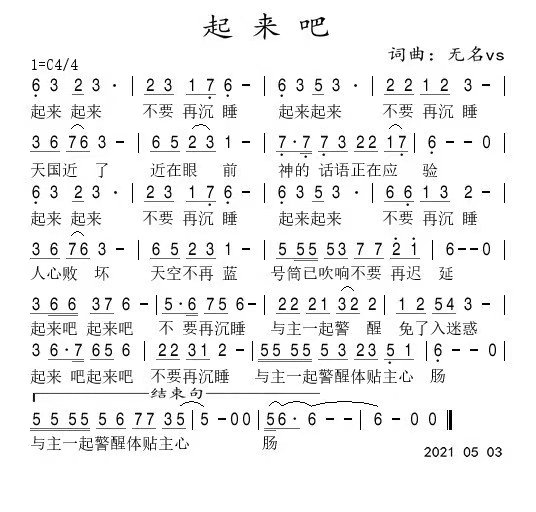 起来吧
词曲：无名vs
1=C4/4
6 3 2 3 · | 2 3 1 7 6 - | 6 3 5 3 · | 2 2 1 2 3 - |
起来 起来 不要 再沉 睡 起来起来 不要 再沉 睡
3 6 7 6 3 - | 6 5 2 3 1 - | 7 · 7 7 3 2 2 1 7 | 6 - - 0 |
天国近 了 近在眼 前 神的 话语正在应 验
6 3 2 3 · | 2 3 1 7 6 - | 6 3 5 3 · | 6 6 1 3 2 - |
起来 起来 不要 再沉 睡 起来起来 不要 再沉 睡
3 6 7 6 3 - | 6 5 2 3 1 - | 5 5 5 5 3 7 7 2 1 | 6 - - 0 |
人心败 坏 天空不再 蓝 号筒已吹响不要 再迟 延
3 6 6 3 7 6 - | 5 · 6 7 5 6 - | 2 2 2 1 3 2 2 | 1 2 5 4 3 - |
起来吧 起来吧 不 要再沉睡 与主一起警 醒 免了入迷惑
3 6 · 7 6 5 6 | 2 2 3 1 2 - | 5 5 5 5 5 3 2 3 5 1 | 6 - - 0 |
起来 吧起来吧 不要再沉睡 与主一起警醒体贴主心 肠
结束句
5 5 5 5 5 6 7 7 3 5 | 5 - 0 0 | 5 6 · 6 - - | 6 - - 0 ‖
与主一起警醒体贴主心 肠
2021 05 03